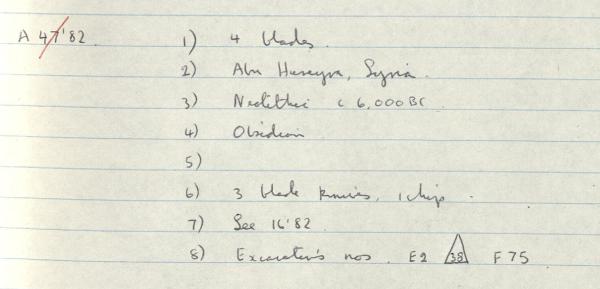 A 47'82 1) 4 blades.
2) Abu Hureyra, Syria.
3) Neolithic c 6,000 BC
4) Obsidian
5)
6) 3 blade knives, 1 chip.
7) See 16'82.
8) Excavator's nos. E2 38 F75